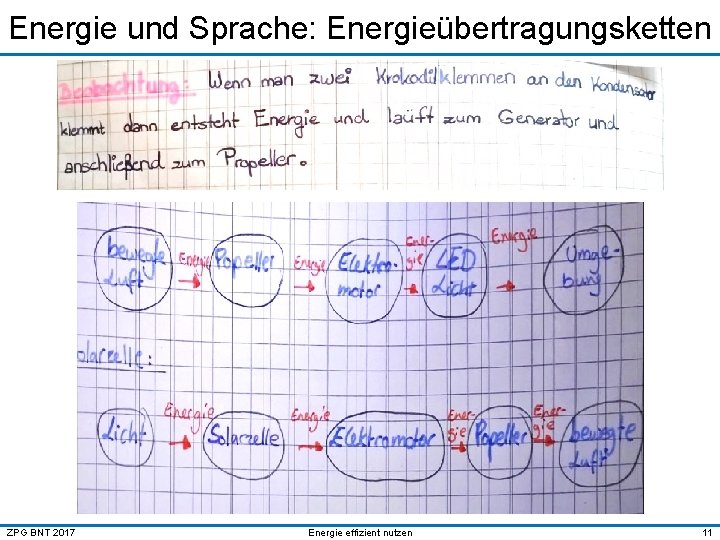 Energie und Sprache: Energieübertragungsketten
Beobachtung: Wenn man zwei Krokodilklemmen an den Kondensator
klemmt dann entsteht Energie und laüft zum Generator und
anschließend zum Propeller.
bewegte Luft Energie Popeller Energie Elektro-motor Ener-gie LED Licht Energie Umge-bung
olarzelle:
Licht Energie Solarzelle Energie Elektromotor Ener-gie Popeller Ener-gie bewegte Luft
ZPG BNT 2017 Energie effizient nutzen 11